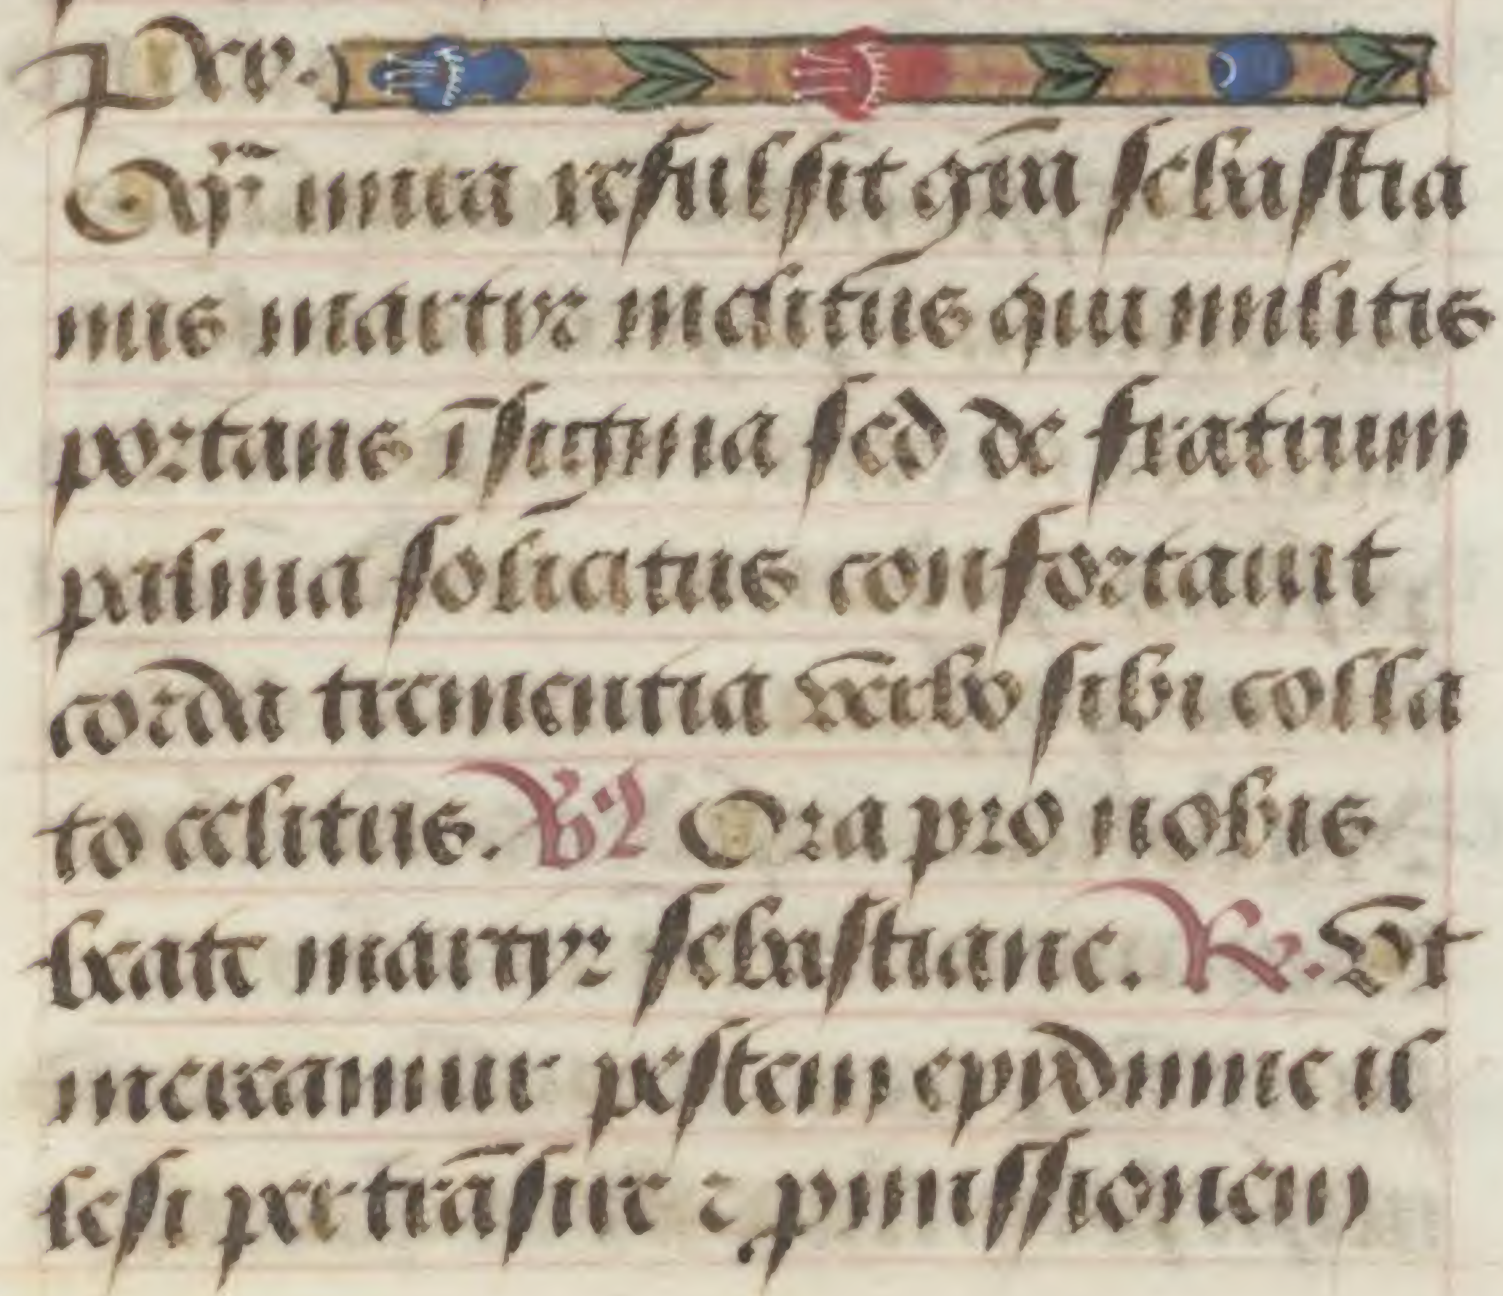 Pxv.
Qȝ mira refulsit grā sebastia
nus martyr inclitus qui militis
portans īsignia sed de fratrum
palma solicitus confortauit
corda trementia verbo sibi colla
to celitus. V Ora pro nobis
beate martyr sebastiane. R. Vt
mereamur pestem epydimie il
lesi pertrāsire ⁊ promissionem